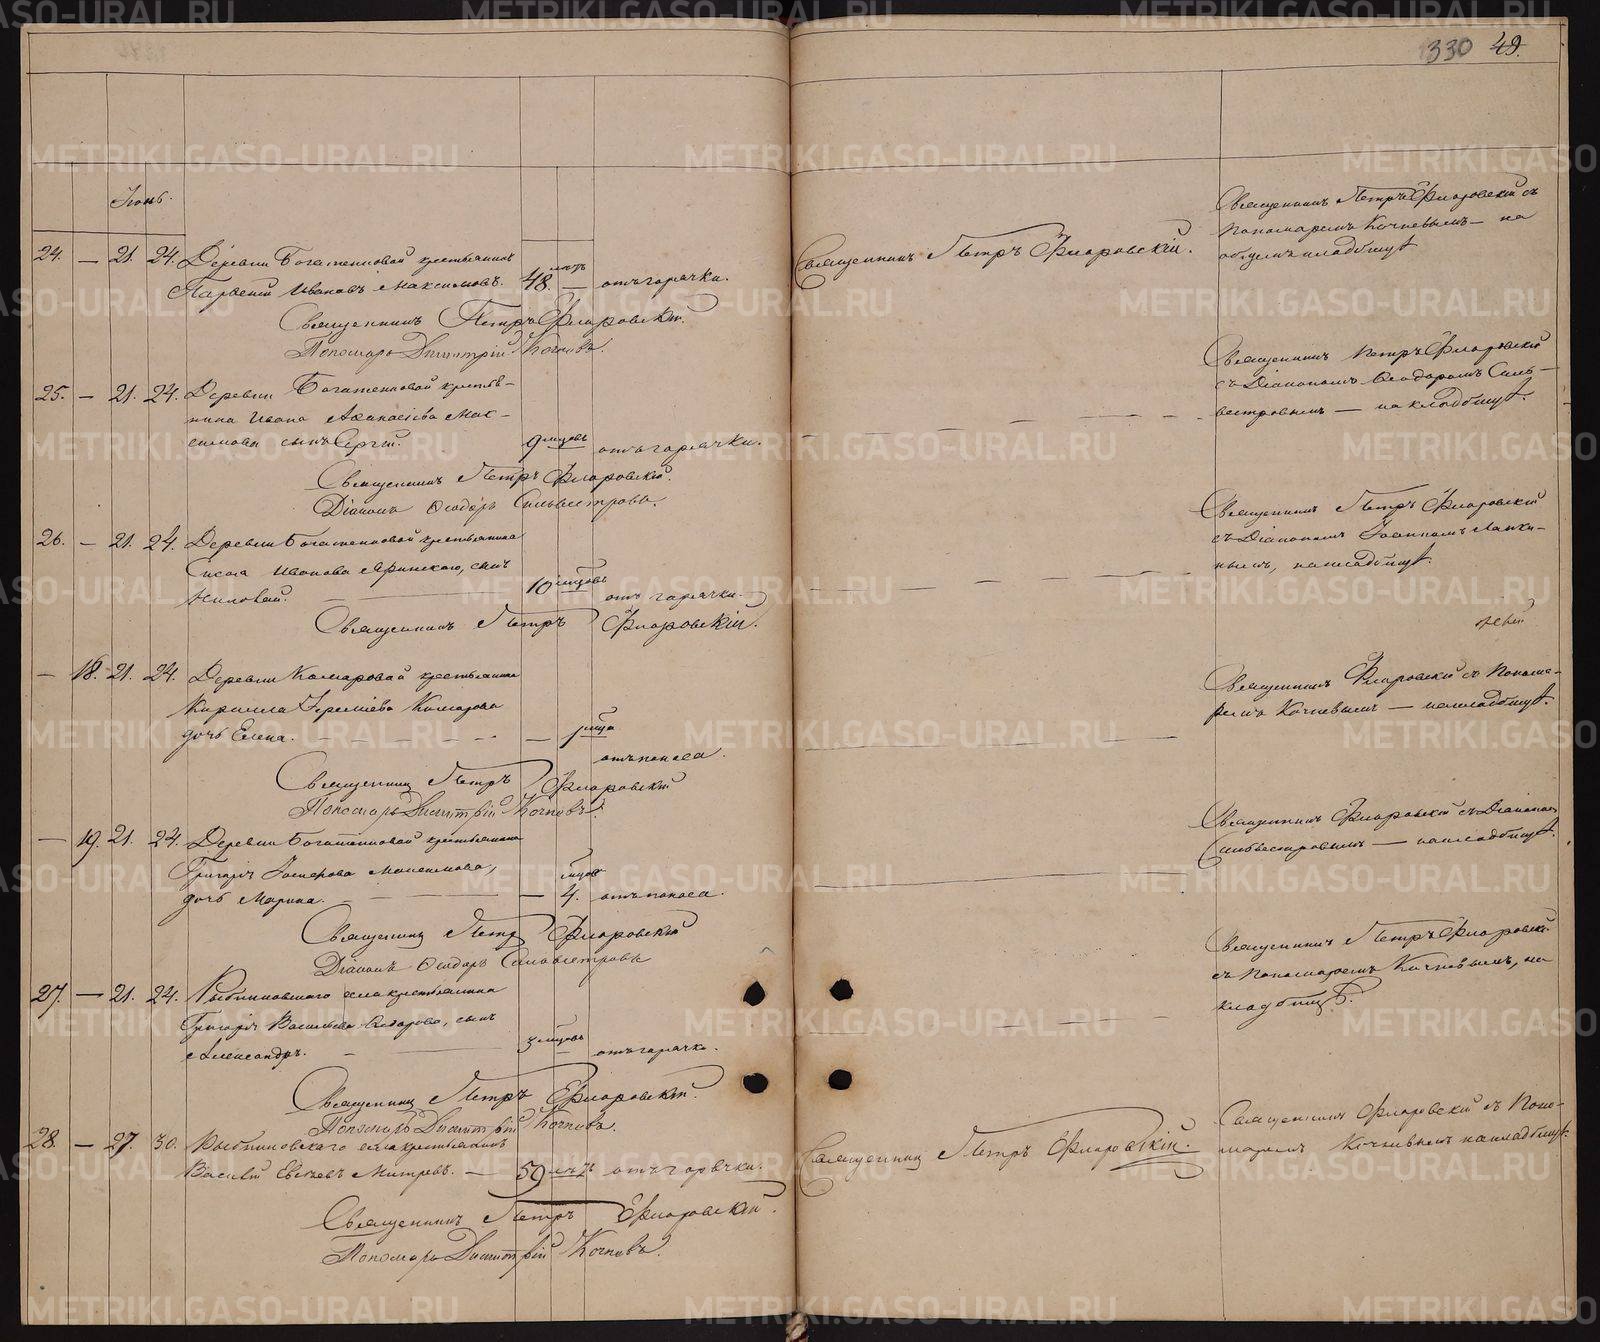 330 49.
Іюнь.
24. — 21. 24. Деревни Богатенковой крестьянинъ
Парѳеній Ивановъ Максимовъ. 48. лѣтъ — отъ горячки.
Священникъ Петръ Флоровскій.
Пономарь Димитрій Кочневъ.
Священникъ Петръ Флоровскій.
Священникъ Петръ Флоровскій съ
Пономаремъ Кочневымъ — на
кладбищѣ
25. — 21. 24. Деревни Богатенковой крестья-
нина Ивана Аѳанасіева Мак-
симова сынъ Сергій. 9 мѣсяцовъ отъ горячки.
Священникъ Петръ Флоровскій.
Діаконъ Ѳеодоръ Сильвестровъ.
Священникъ Петръ Флоровскій
съ Діакономъ Ѳеодоромъ Силь-
вестровымъ — на кладбищѣ.
26. — 21. 24. Деревни Богатенковой крестьянина
Ивана сынъ
10 мѣсяцовъ отъ горячки.
Священникъ Петръ Флоровскій.
Священникъ Петръ Флоровскій
съ Діакономъ Іоанномъ
на кладбищѣ.
— 18. 21. 24. Деревни Комаровой крестьянина
Кирилла Іереміева Комарова
дочь Елена. — отъ поноса.
Священникъ Петръ Флоровскій
Пономарь Димитрій Кочневъ.
Священникъ Флоровскій съ Понома-
ремъ Кочневымъ — на кладбищѣ.
— 19. 21. 24. Деревни Богатенковой крестьянина
Григорія Максимова,
дочь Марина. — 4. отъ поноса.
Священникъ Петръ Флоровскій
Діаконъ Ѳеодоръ Сильвестровъ
Священникъ Флоровскій съ Діакономъ
Сильвестровымъ — на кладбищѣ.
27. — 21. 24. Рыбниковскаго села крестьянина
Григорія Васильева сынъ
Александръ. 3 мѣсяцовъ отъ горячки.
Священникъ Петръ Флоровскій.
Пономарь Димитрій Кочневъ.
Священникъ Петръ Флоровскій
съ Пономаремъ Кочневымъ, на
кладбищѣ.
28. — 27. 30. Рыбниковскаго села крестьянинъ
Василій — 59 лѣтъ отъ горячки.
Священникъ Петръ Флоровскій.
Пономарь Димитрій Кочневъ.
Священникъ Петръ Флоровскій.
Священникъ Флоровскій съ Поно-
маремъ Кочневымъ на кладбищѣ.
METRIKI.GASO-URAL.RU